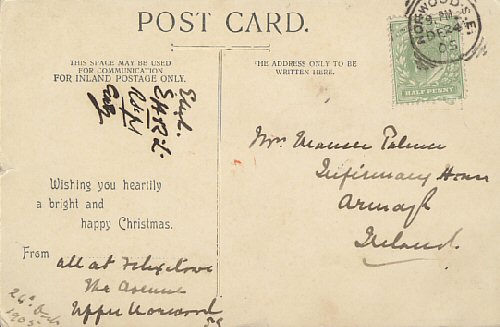 POST CARD.
THIS SPACE MAY BE USED
FOR COMMUNICATION
FOR INLAND POSTAGE ONLY.
THE ADDRESS ONLY TO BE
WRITTEN HERE.
NORWOOD. S.E.
DE 24
05
HALF PENNY
Palmer
Infirmary House
Armagh
Ireland.
Wishing you heartily
a bright and
happy Christmas.
From
all at
The Avenue
Upper Norwood
S.E.
24th Dec
1905